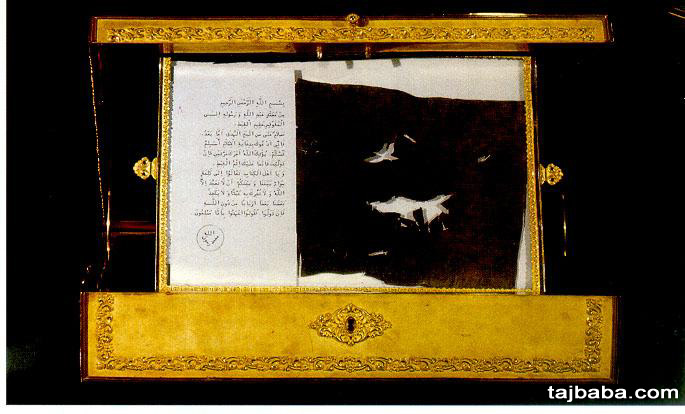 بسم الله الرحمن الرحيم
من محمد عبد الله و رسوله إلى
المقوقس عظيم القبط
سلام على من اتبع الهدى أما بعد
فإنى أدعوك بدعاية الإسلام أسلم
تسلم يؤتك الله أجرك مرتين فإن
توليت فإنما عليك إثم القبط
و يا أهل الكتاب تعالوا إلى كلمة
سواء بيننا و بينكم أن لا نعبد إلا
الله و لا نشرك به شيئا و لا يتخذ
بعضنا بعضا أربابا من دون الله
فإن تولوا فقولوا اشهدوا بأنا مسلمون
الله
tajbaba.com